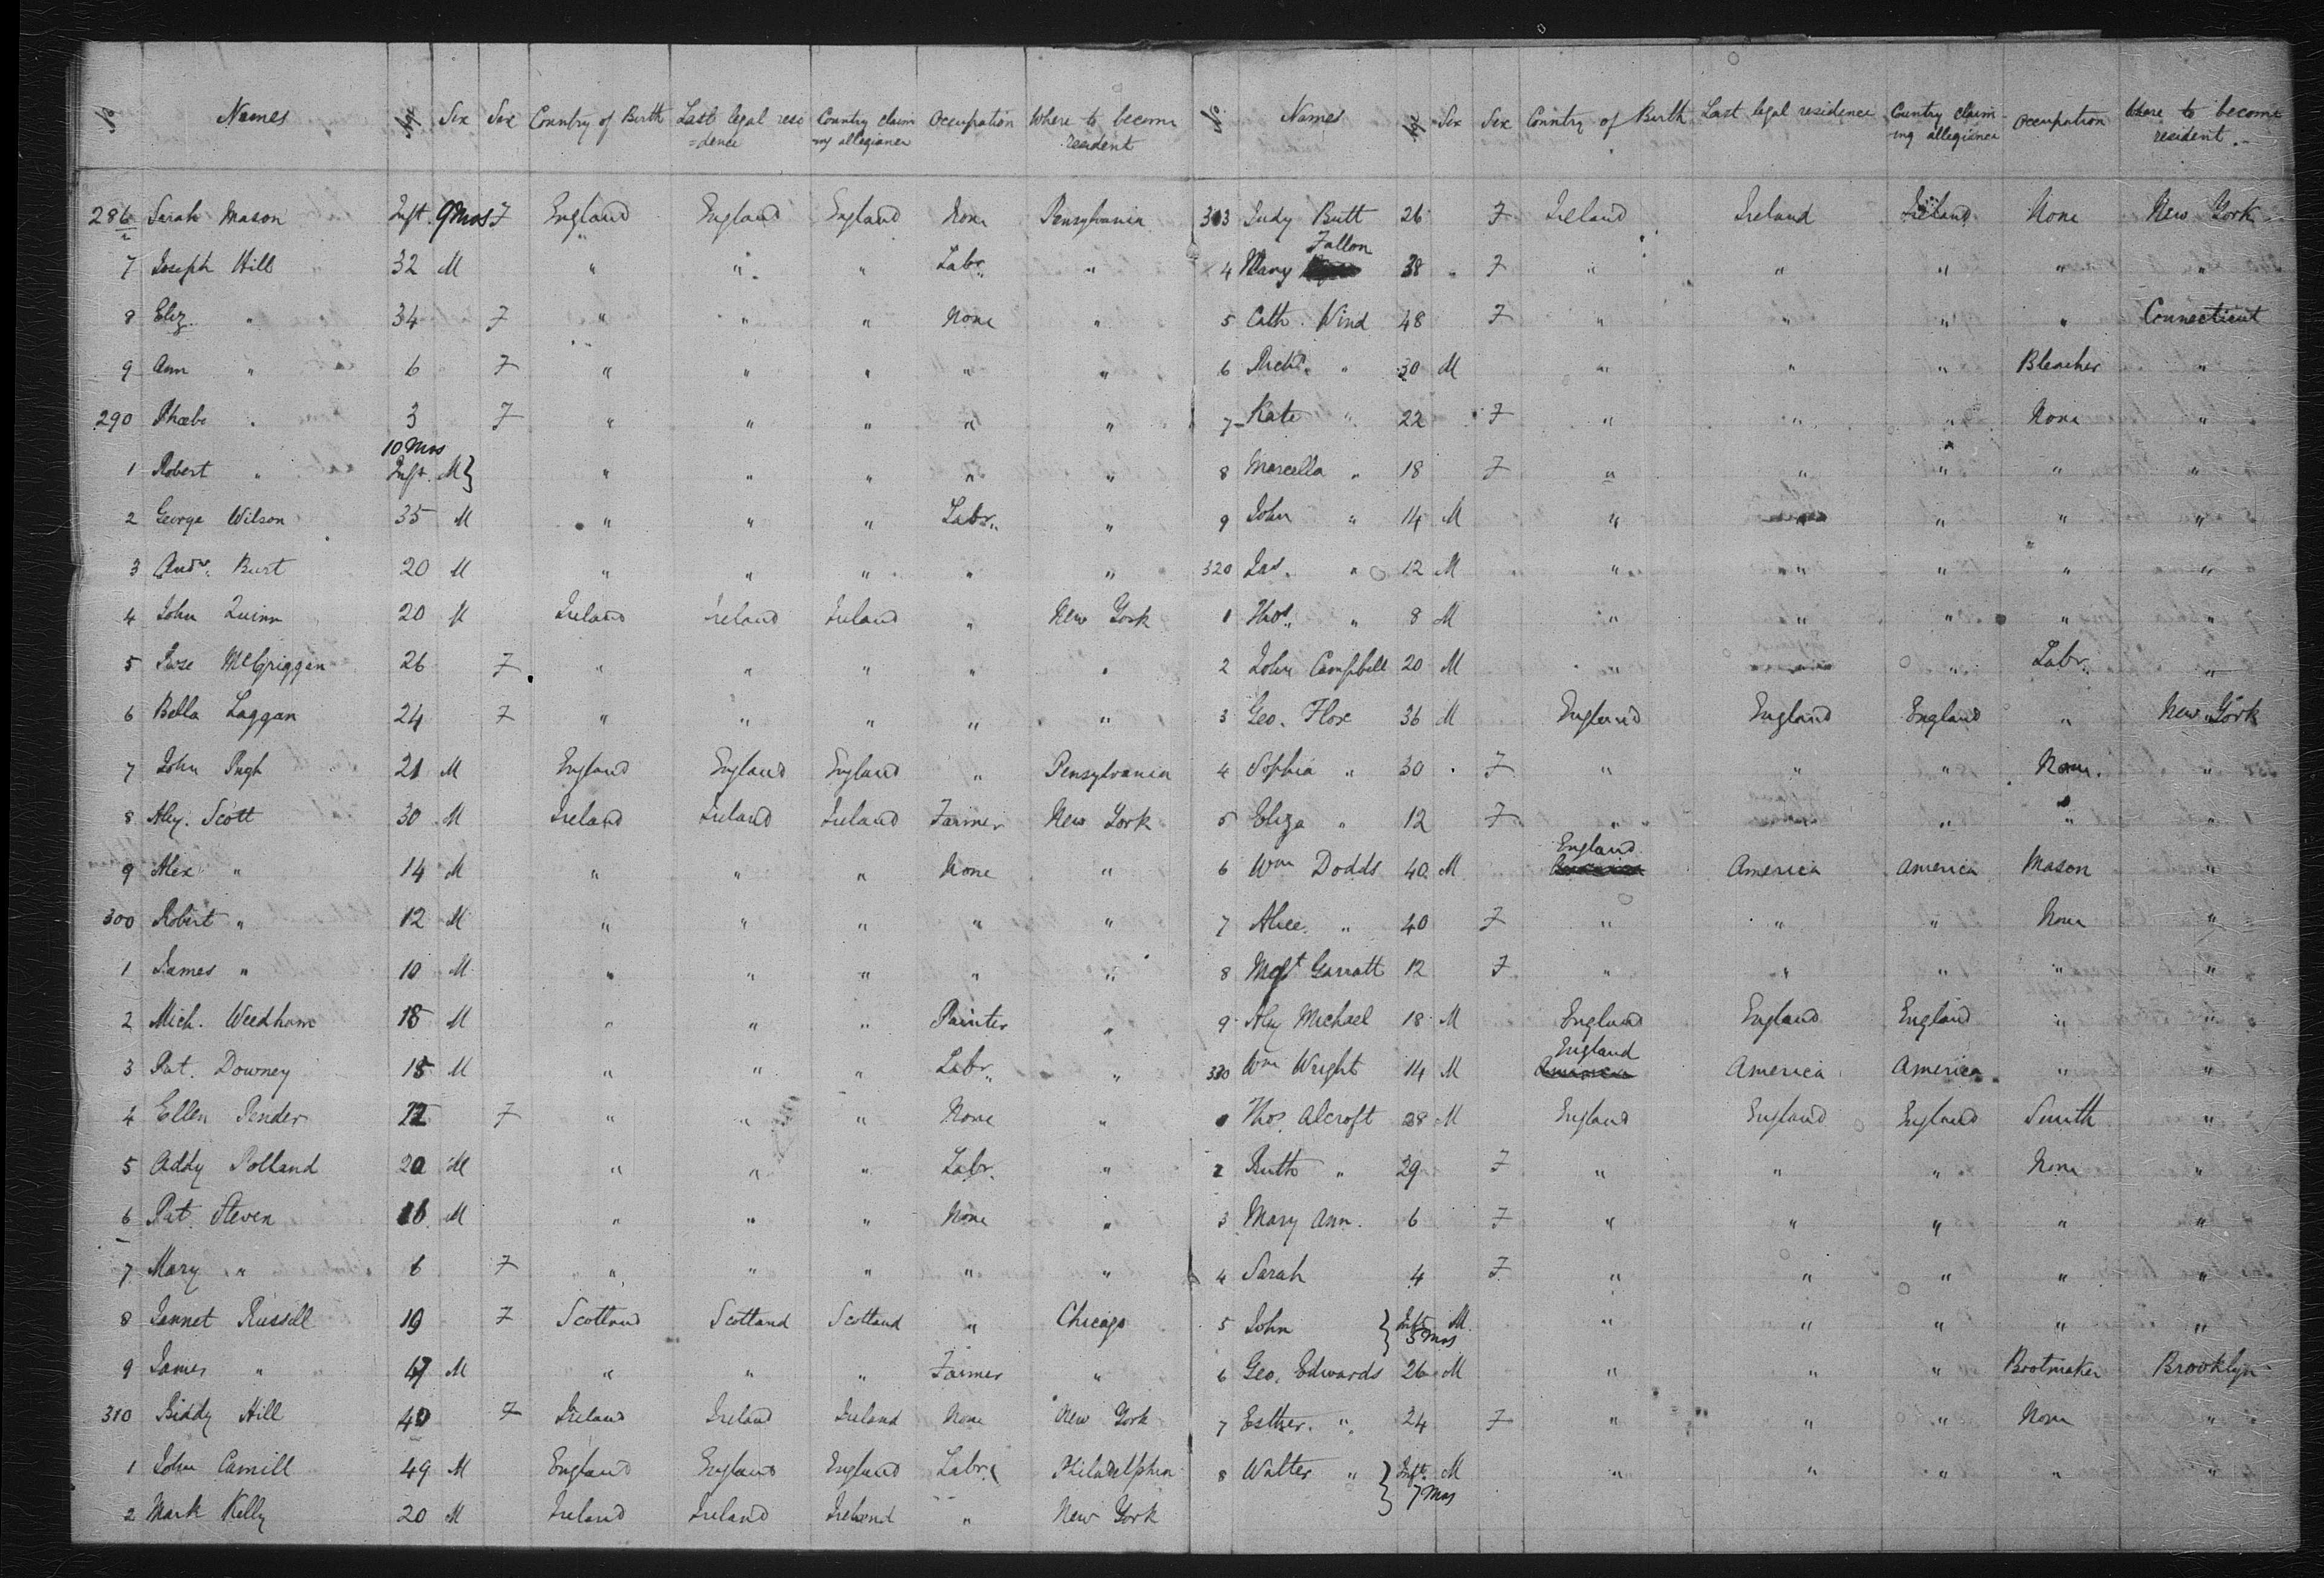 No Names Age Sex Sex Country of Birth Last legal resi=dence Country claiming allegiance Occupation Where to become resident
286 Sarah Mason Inft. 9 Mos F England England England None Pensylvania
7 Joseph Hill 32 M " " " Labr. "
8 Eliz. " 34 F " " " None "
9 Ann " 6 F " " " " "
290 Phoebe " 3 F " " " " "
1 Robert " 10 Mos Inft. M } " " " " "
2 George Wilson 35 M " " " Labr. "
3 Andw. Burt 20 M " " " " "
4 John Quinn 20 M Ireland Ireland Ireland " New York
5 Rose McGriggan 26 F " " " " "
6 Bella Laggan 24 F " " " " "
7 John Pugh 21 M England England England " Pensylvania
8 Alex. Scott 30 M Ireland Ireland Ireland Farmer New York
9 Alex " 14 M " " " None "
300 Robert " 12 M " " " " "
1 James " 10 M " " " " "
2 Mich. Weedham 18 M " " " Painter "
3 Pat. Downey 18 M " " " Labr. "
4 Ellen Pender F " " " None "
5 Addy Polland 20 M " " " Labr. "
6 Pat. Steven M " " " None "
7 Mary " 6 F " " " " "
8 Jannet Russell 19 F Scotland Scotland Scotland " Chicago
9 James " M " " " Farmer "
310 Biddy Hill 40 F Ireland Ireland Ireland None New York
1 John Camill 49 M England England England Labr. Philadelphia
2 Mark Kelly 20 M Ireland Ireland Ireland " New York
No Names Age Sex Sex Country of Birth Last legal residence Country claiming allegiance Occupation Where to become resident.
313 Judy Butt 26 F Ireland Ireland Ireland None New York
4 Mary Fallon 38 F " " " " "
5 Cath. Wind 48 F " " " " Connecticut
6 Richd. " 30 M " " " Bleacher "
7 Kate " 22 F " " " None "
8 Marcella " 18 F " " " " "
9 John " 14 M " " " " "
320 Jas. " 12 M " " " " "
1 Thos. " 8 M " " " " "
2 John Campbell 20 M " " " Labr. "
3 Geo. Flox 36 M England England England " New York
4 Sophia " 30 F " " " None. "
5 Eliza " 12 F " " " " "
6 Wm Dodds 40 M England America America Mason "
7 Alice " 40 F " " " None "
8 Mgt Garratt 12 F " " " " "
9 Alex Michael 18 M England England England " "
330 Wm Wright 14 M England America America " "
1 Thos. Alcroft 28 M England England England Smith "
2 Ruth " 29 F " " " None "
3 Mary Ann. 6 F " " " " "
4 Sarah 4 F " " " " "
5 John } Inft. M 5 Mos " " " " "
6 Geo. Edwards 26 M " " " Bootmaker Brooklyn
7 Esther. " 24 F " " " None "
8 Walter " } Inft. M 7 Mos " " " " "